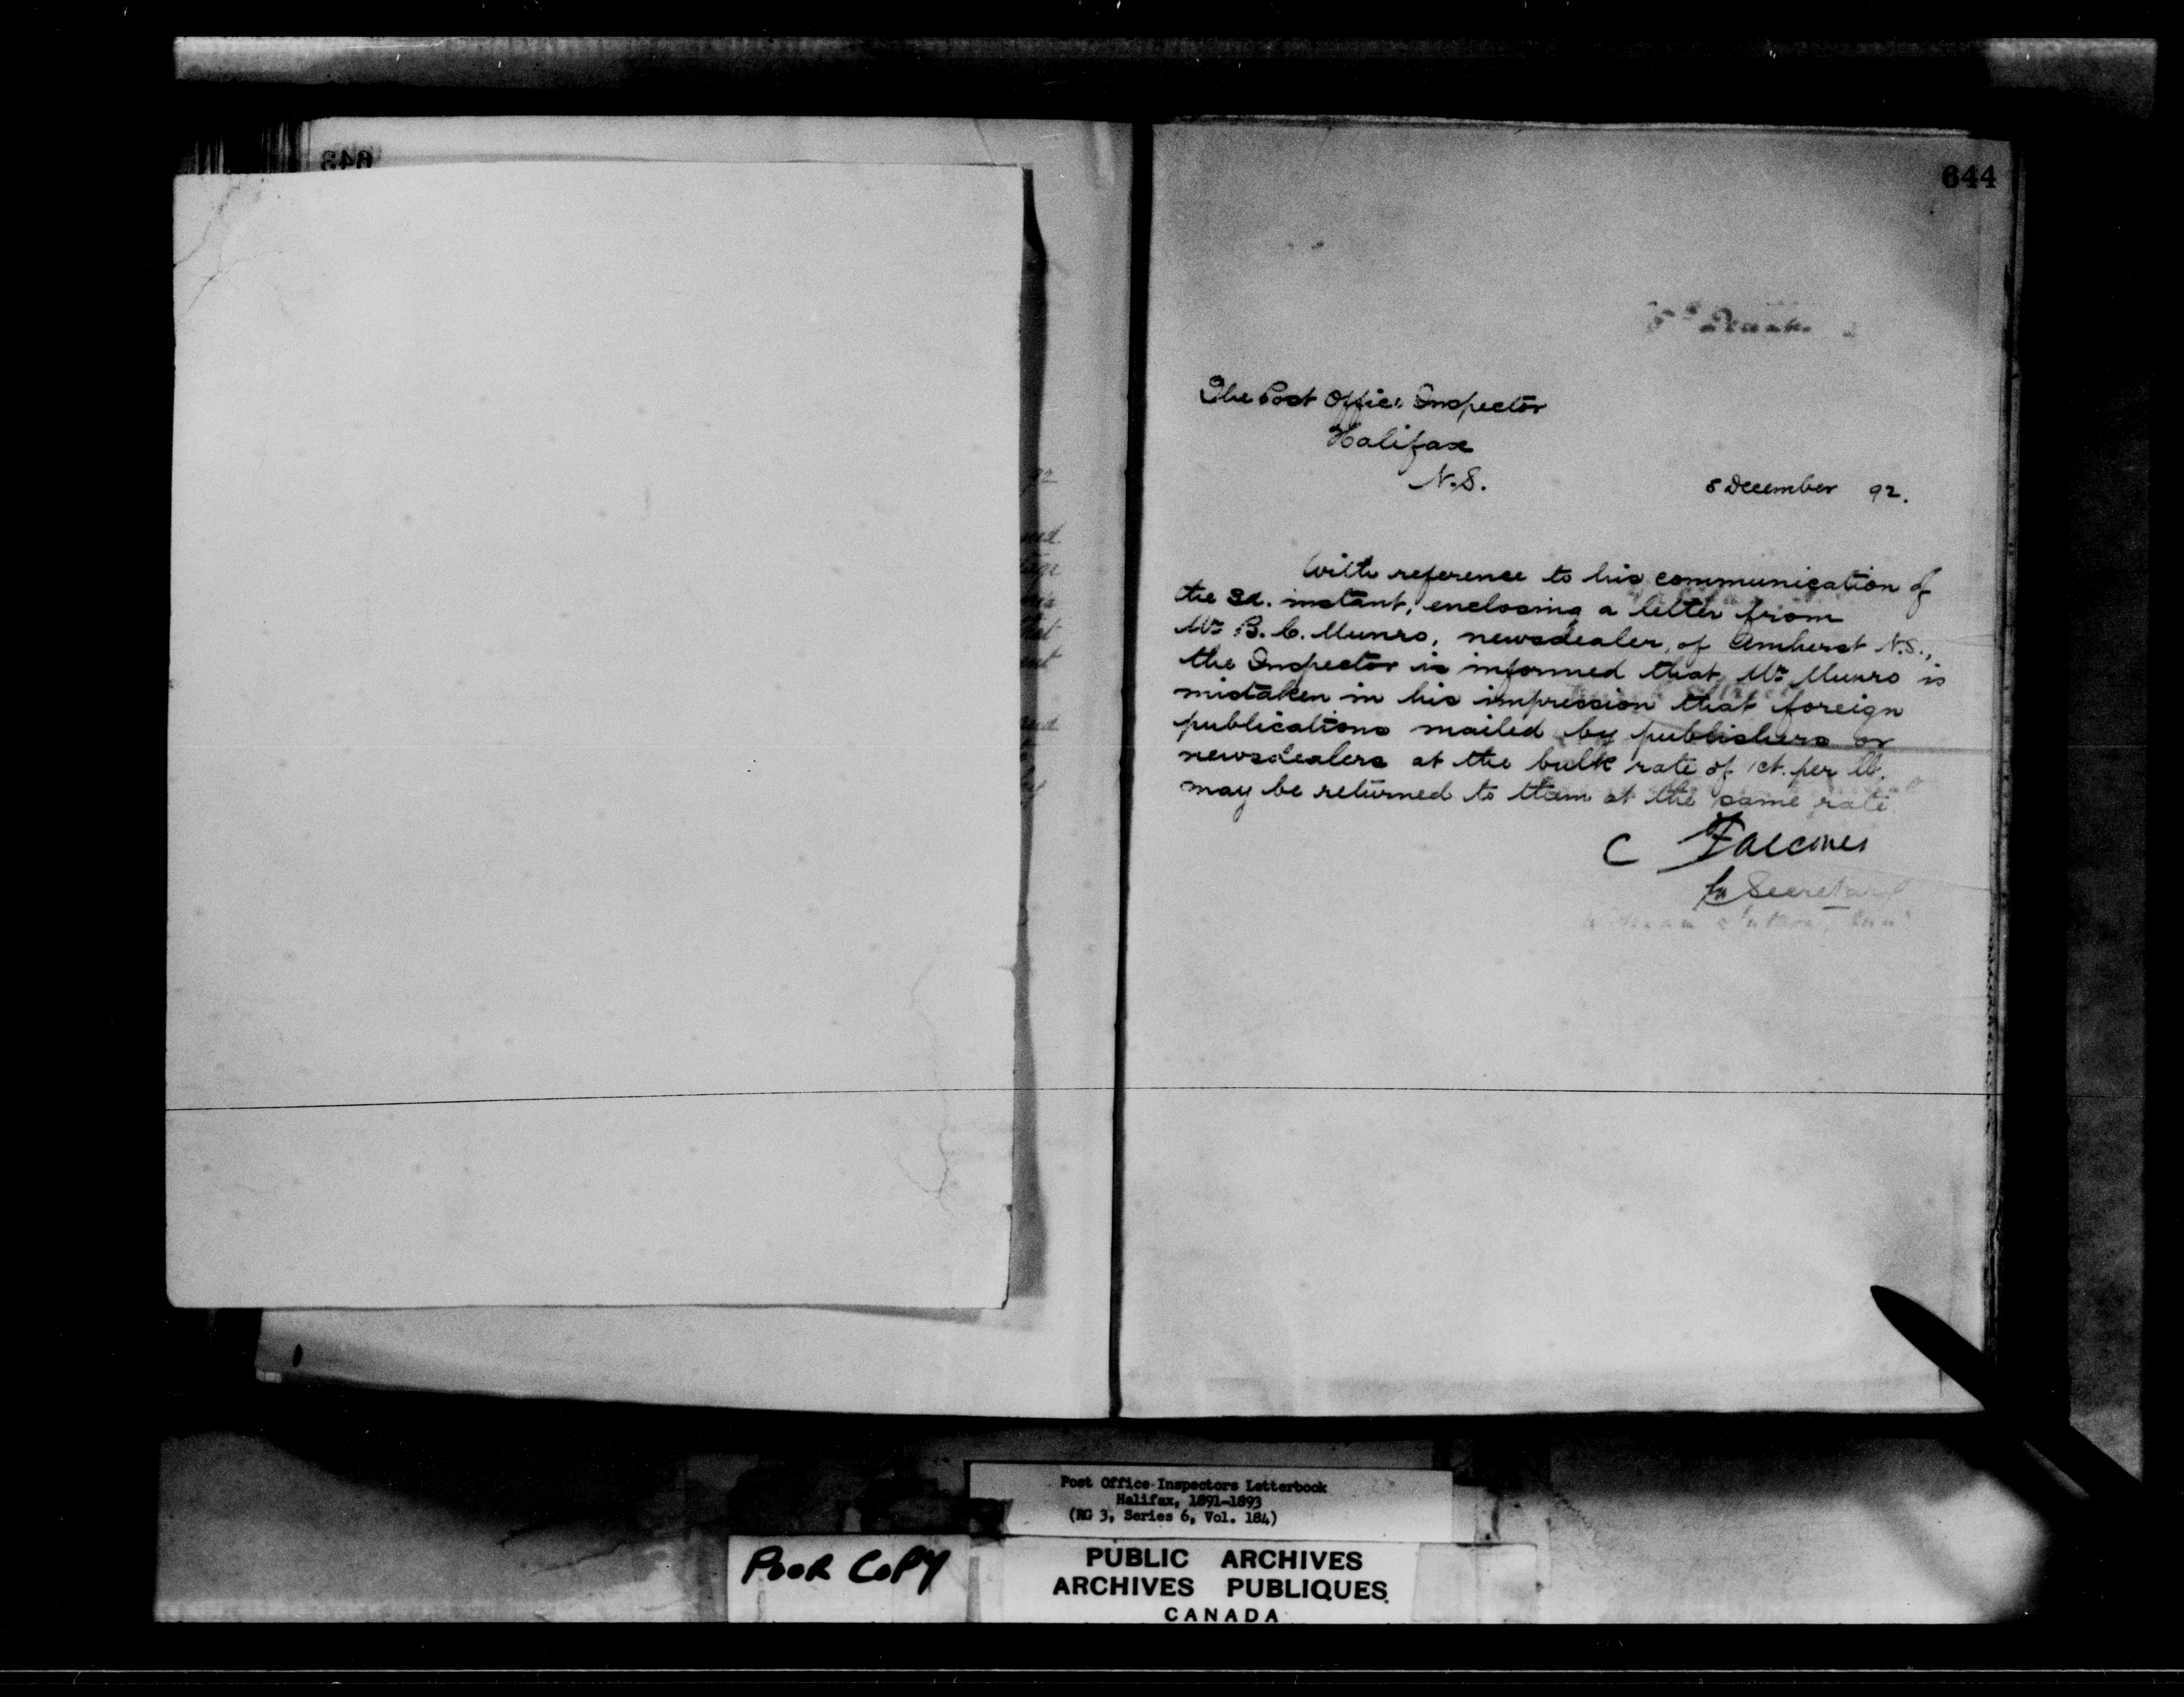 643
644
The Post Office Inspector
Halifax
N.S.
8 December 92.
With reference to his communication of
the 3d. instant, enclosing a letter from
Mr B. C. Munro, newsdealer, of Amherst N.S.,
the Inspector is informed that Mr Munro is
mistaken in his impression that foreign
publications mailed by publishers or
newsdealers at the bulk rate of 1ct. per lb.
may be returned to them at the same rate.
C Falconer
for Secretary
Post Office Inspectors Letterbook
Halifax, 1891-1893
(RG 3, Series 6, Vol. 184)
POOR COPY
PUBLIC ARCHIVES
ARCHIVES PUBLIQUES
CANADA